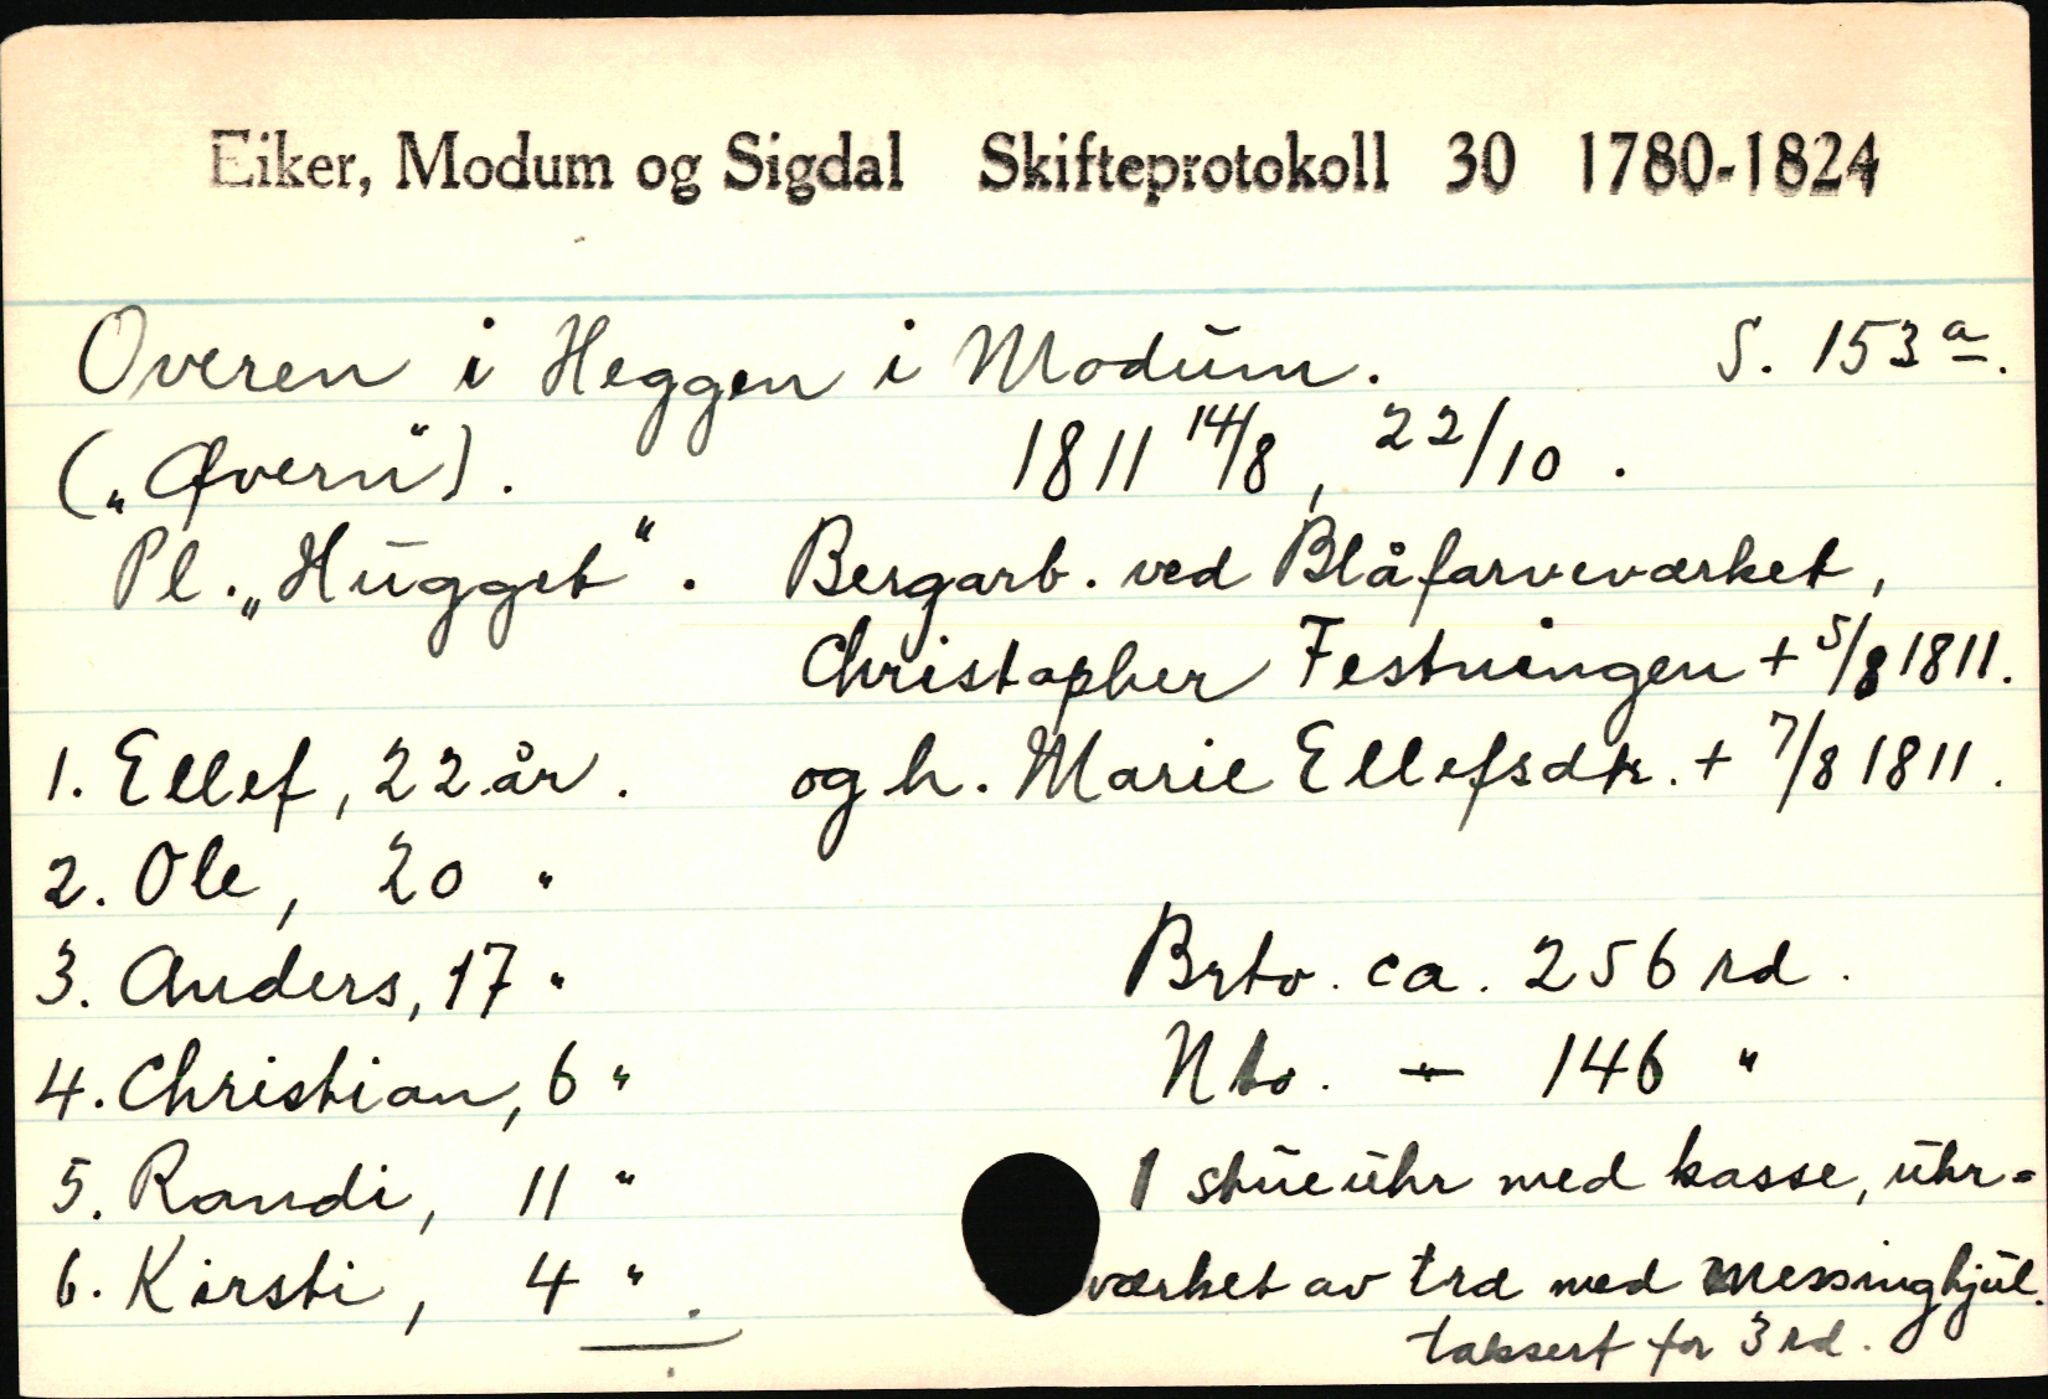 Eiker, Modum og Sigdal Skifteprotokoll 30 1780-1824
Overen i Heggen i Modum. S. 153 a.
(„Øvern“). 1811 14/8, 22/10.
Pl. „Hugget“. Bergarb. ved Blåfarveværket,
Christopher Festningen + 5/8 1811.
1. Ellef, 22 år. og h. Marie Ellefsdtr. + 7/8 1811.
2. Ole, 20 "
3. Anders, 17 " Brto. ca. 256 rd.
4. Christian, 6 " Nto. — " — 146 "
5. Randi, 11 " 1 stueuhr med kasse, uhr=
6. Kirsti, 4 ". værket av træ med messinghjul.
taksert for 3 rd.